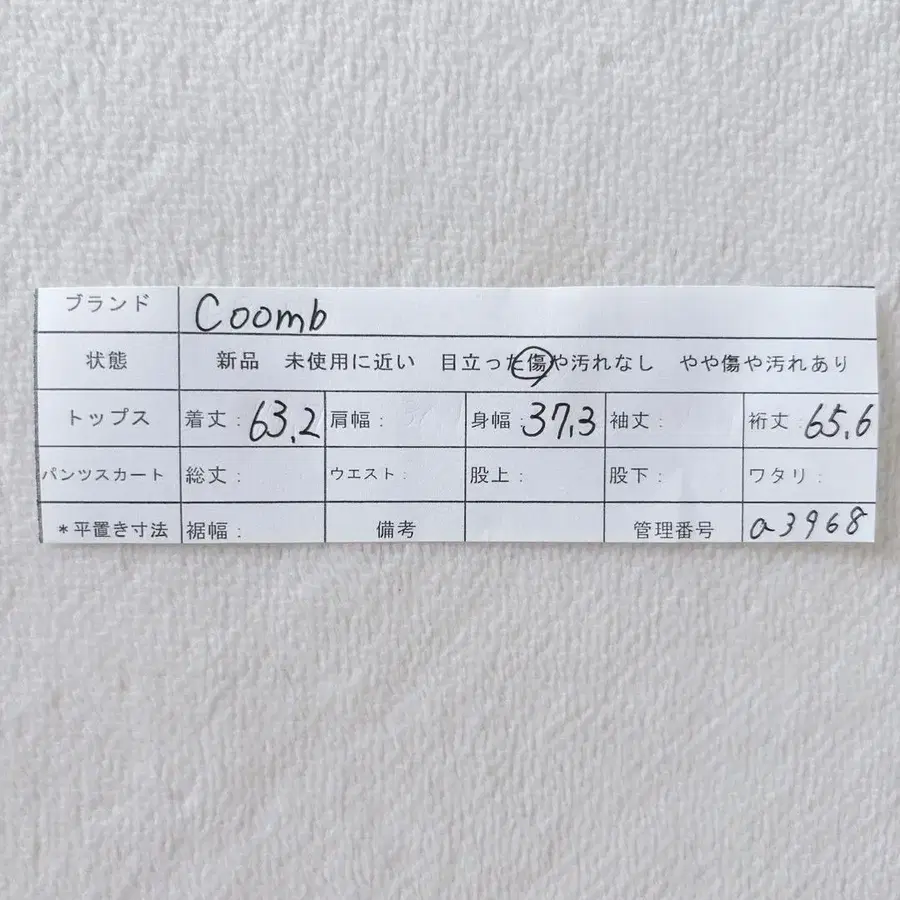 ブランド Coomb
状態 新品 未使用に近い 目立った傷や汚れなし やや傷や汚れあり
トップス 着丈: 63.2 肩幅: 身幅: 37.3 袖丈: 裄丈: 65.6
パンツスカート 総丈: ウエスト: 股上: 股下: ワタリ:
*平置き寸法 裾幅: 備考 管理番号 a3968